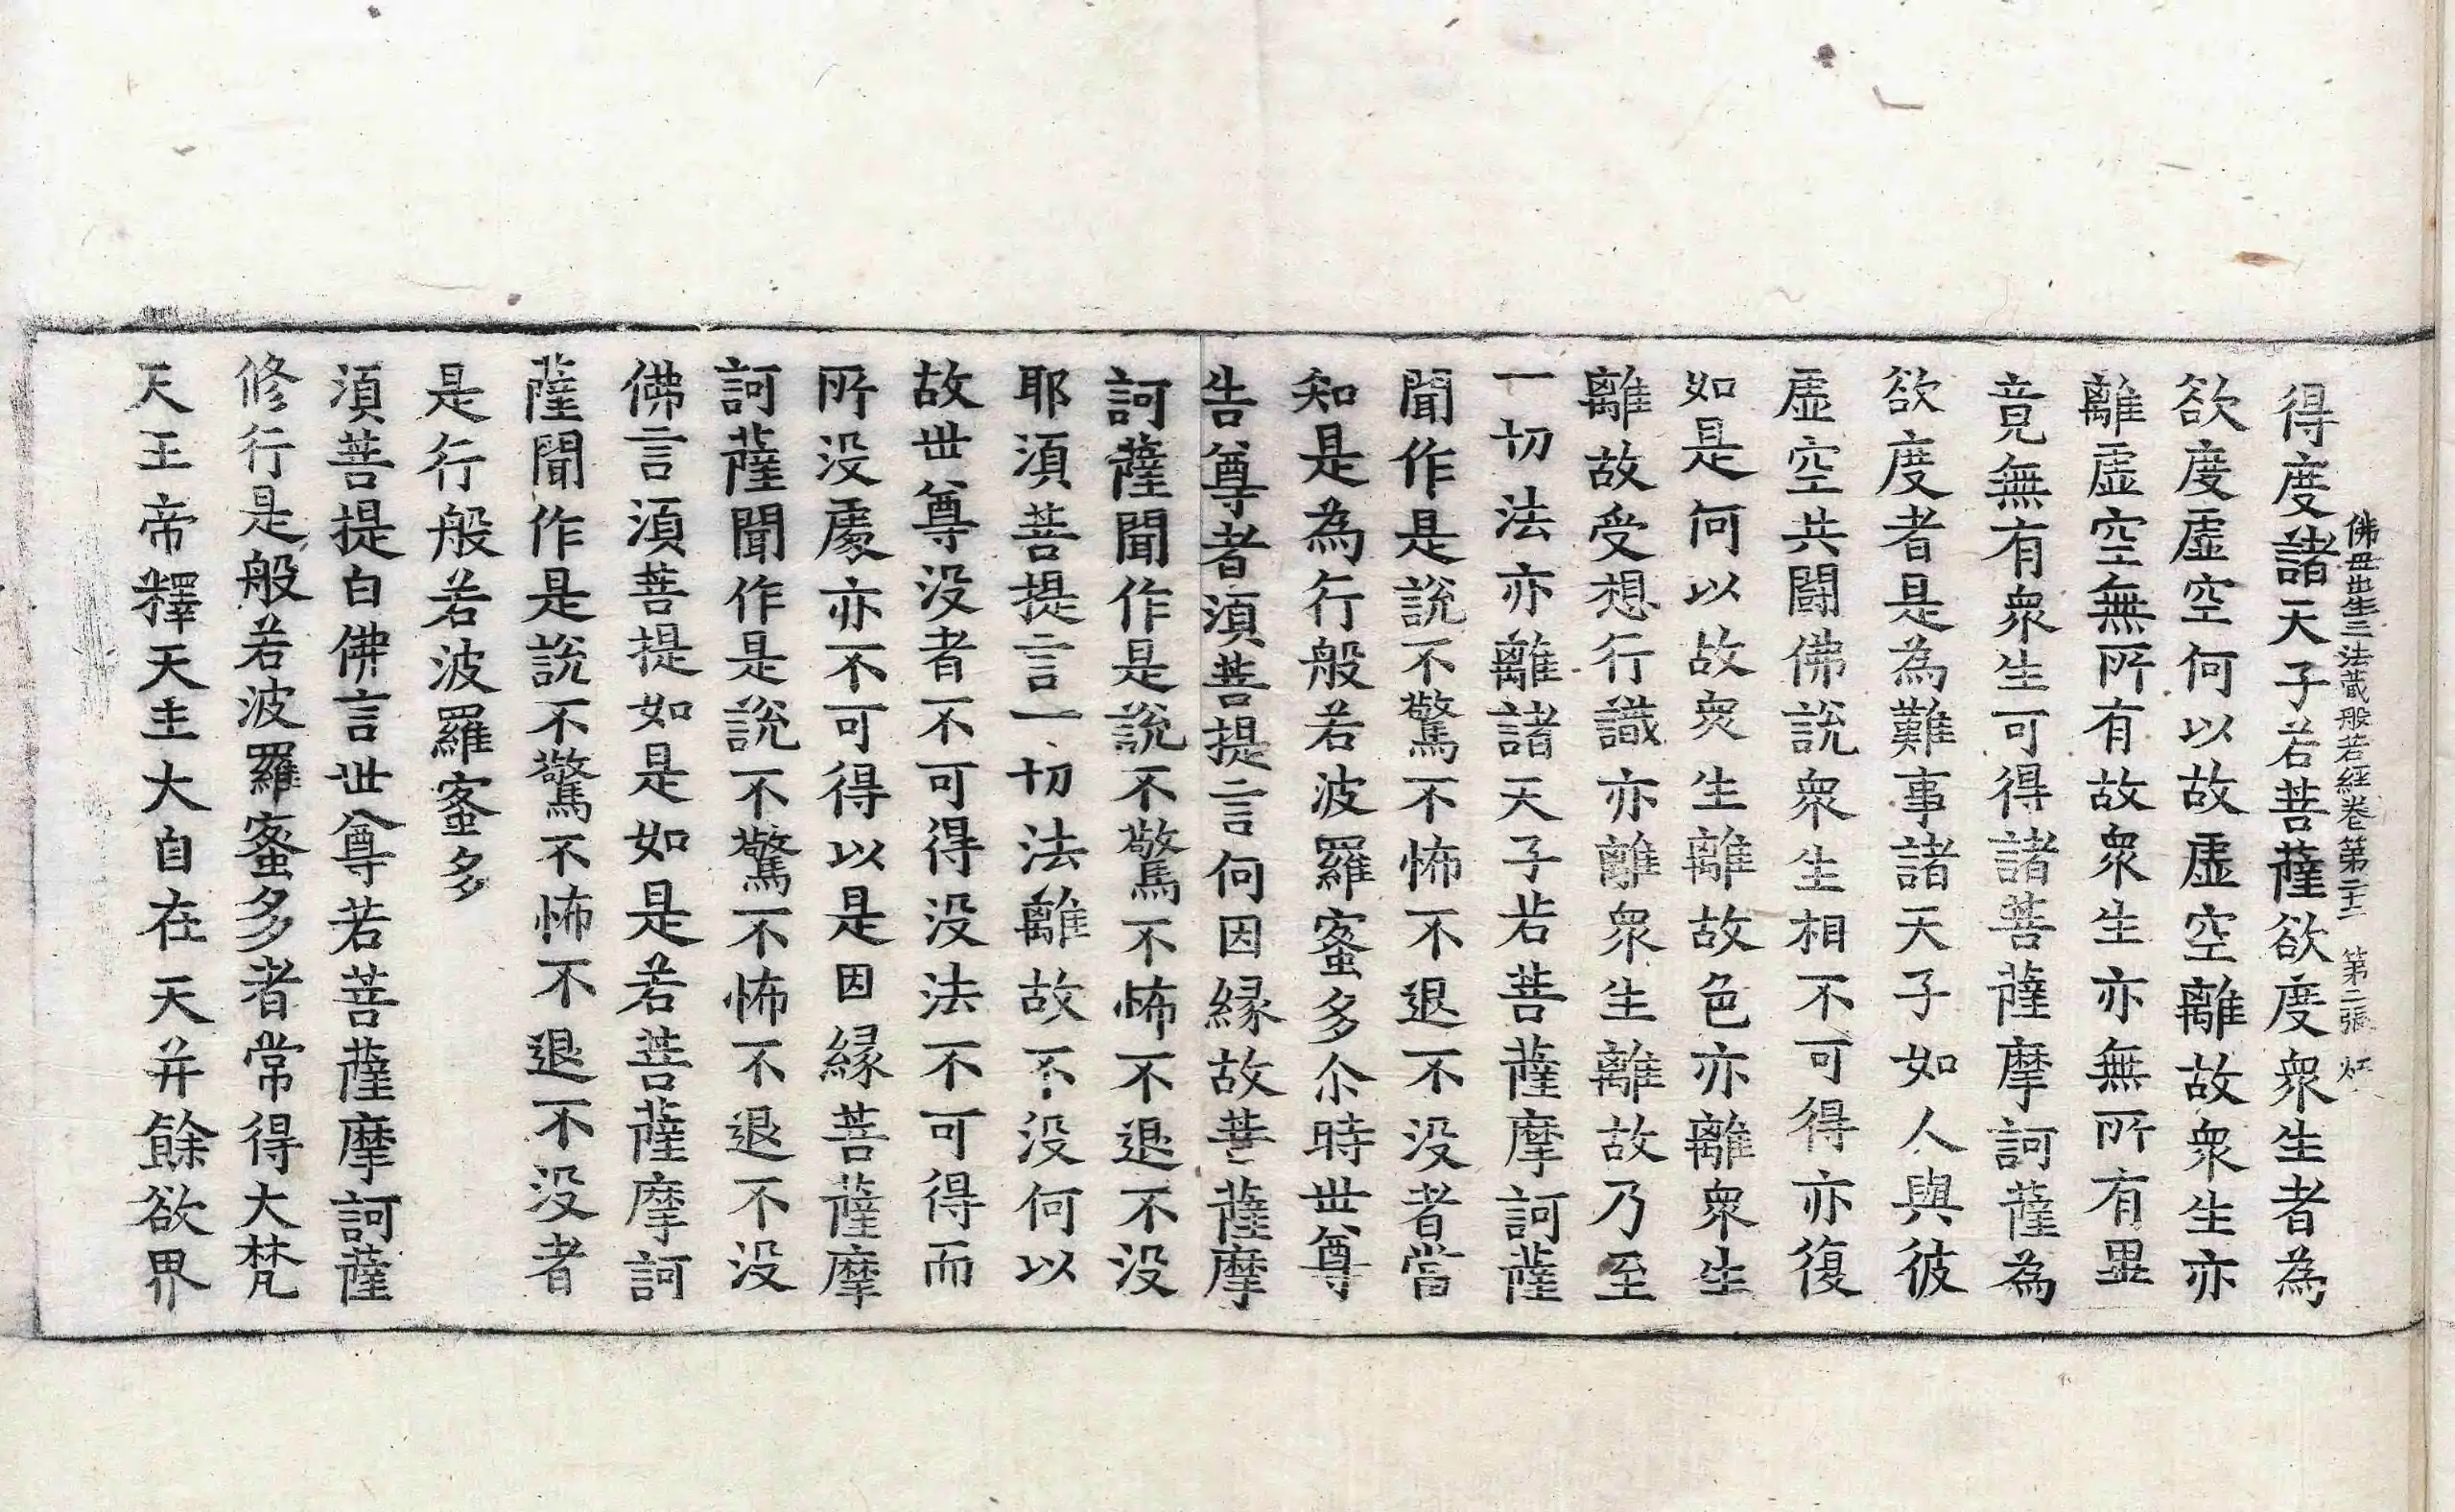 佛母出生三法藏般若經卷第二十二 第二張
得度諸天子若菩薩欲度衆生者為
欲度虛空何以故虛空離故衆生亦
離虛空無所有故衆生亦無所有畢
竟無有衆生可得諸菩薩摩訶薩為
欲度者是為難事諸天子如人與彼
虛空共鬪佛說衆生相不可得亦復
如是何以故衆生離故色亦離衆生
離故受想行識亦離衆生離故乃至
一切法亦離諸天子若菩薩摩訶薩
聞作是說不驚不怖不退不没者當
知是為行般若波羅蜜多尒時世尊
告尊者湏菩提言何因縁故菩薩摩
訶薩聞作是說不驚不怖不退不没
耶湏菩提言一切法離故不没何以
故世尊没者不可得没法不可得而
所没處亦不可得以是因縁菩薩摩
訶薩聞作是說不驚不怖不退不没
佛言湏菩提如是如是若菩薩摩訶
薩聞作是說不驚不怖不退不没者
是行般若波羅蜜多
湏菩提白佛言世尊若菩薩摩訶薩
修行是般若波羅蜜多者常得大梵
天王帝釋天主大自在天并餘欲界